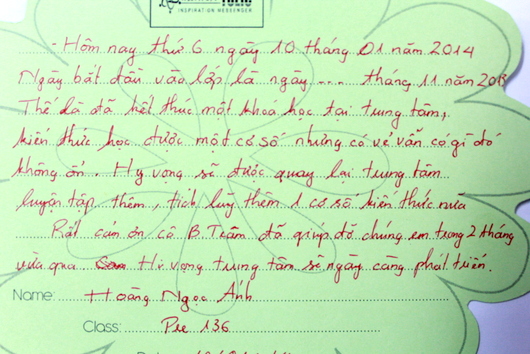 INSPIRATION MESSENGER
- Hôm nay thứ 6 ngày 10 tháng 01 năm 2014
Ngày bắt đầu vào lớp là ngày .... tháng 11 năm 2013
Thế là đã kết thúc một khoá học tại trung tâm,
kiến thức học được một cơ số nhưng có vẻ vẫn có gì đó
không ổn. Hy vọng sẽ được quay lại trung tâm
luyện tập thêm, tích luỹ thêm 1 cơ số kiến thức nữa
Rất cảm ơn cô B.Trâm đã giúp đỡ chúng em trong 2 tháng
vừa qua. Hi vọng trung tâm sẽ ngày càng phát triển.
Name: Hoàng Ngọc Ánh
Class: Pre 136